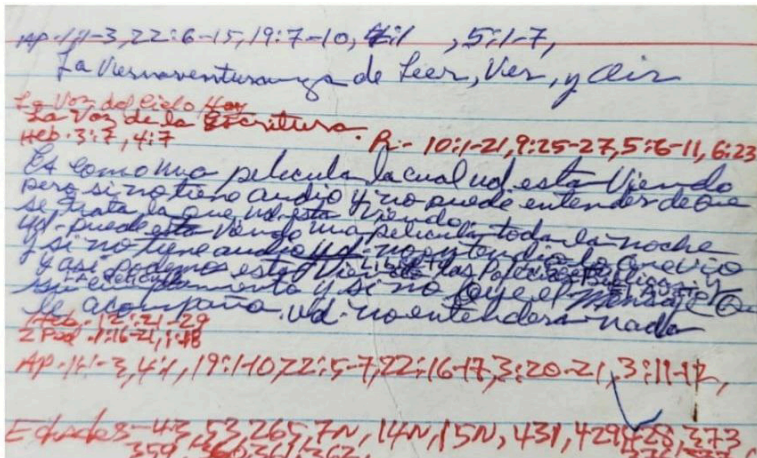 Ap-1:1-3, 22:6-15, 19:7-10, 4:1, 5:1-7,
La Vienaventuranza de Leer, Ver, y Oir
La Voz del Cielo Hoy
La Voz de la Escritura.
Heb. 3:7, 4:7
R.- 10:1-21, 9:25-27, 5:6-11, 6:23
Es como una pelicula la cual ud. esta Viendo
pero si no tiene audio ud. no puede entender de que
se trata lo que ud. esta Viendo
ud. puede estar Viendo una pelicula toda la noche
y si no tiene audio ud. no entendio lo que vio
y asi podemos estar Viendo las
y si no oye el Mensaje que
le acompaña ud. no entendera nada
Heb.-12:21-29
2 Ped-1:16-21, 1:18
Ap-1:1-3, 4:1, 19:1-10, 22:5-7, 22:16-17, 3:20-21, 3:11-12,
Edades-43, 53, 265, 7N, 14N, 15N, 431, 429, 428, 373
359, 360, 361, 362, 376, 377